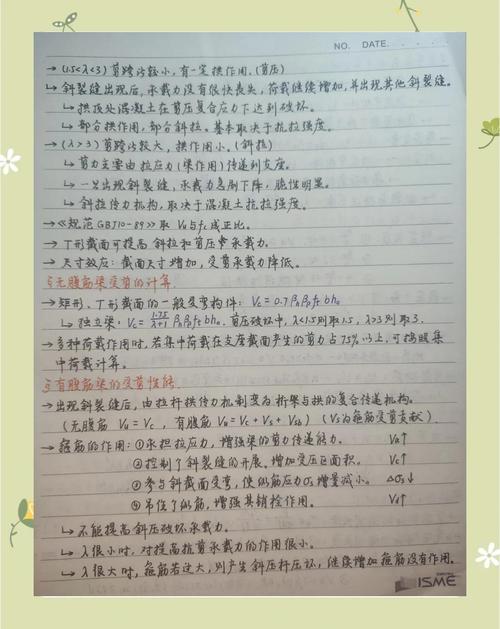 NO. DATE.
→ (1.5<λ<3) 剪跨比较小，有一定拱作用。(剪压)
↳ 斜裂缝出现后，承载力没有很快丧失，荷载继续增加，并出现其他斜裂缝。
↳ 拱顶处混凝土在剪压复合应力下达到破坏。
↳ 部分拱作用，部分斜拉。基本取决于抗拉强度。
→ (λ>3) 剪跨比较大，拱作用小。(斜拉)
↳ 剪力主要由拉应力(梁作用)传递到支座。
↳ 一旦出现斜裂缝，承载力急剧下降，脆性明显。
↳ 斜拉传力机构，取决于混凝土抗拉强度。
→《规范GBJ10-89》取 Vu与fc成正比。
→ T形截面可提高斜拉和剪压承载力。
→ 尺寸效应：截面尺寸增加，受剪承载力降低。
无腹筋梁受剪的计算
→ 矩形、T形截面的一般受弯构件：Vc = 0.7 βh βρ ft bh0
↳ 独立梁：Vc = 1.75/λ+1 βh βρ ft bh0。剪压破坏中，λ<1.5则取1.5，λ>3则取3.
→ 多种荷载作用时，若集中荷载在支座截面产生的剪力占75%以上，可按照集
中荷载计算。
有腹筋梁的受剪性能
→ 出现斜裂缝后，由拉杆拱传力机制变为桁架与拱的复合传递机构。
(无腹筋 Vu = Vc，有腹筋 Vu = Vc + Vs + Vsb) (Vs为箍筋受剪贡献)
→ 箍筋的作用：①承担拉应力，增强梁的剪力传递能力。 Va↑
②控制了斜裂缝的开展，增加受压区面积。 Vc↑
③参与斜截面受弯，使纵筋应力σs增量减小。 Δσs↓
④吊住了纵筋，增强其销栓作用。 Vd↑
↳ 不能提高斜压破坏承载力。
↳ λ很小时，对提高抗剪承载力的作用很小。
↳ λ很大时，箍筋若过大，则产生斜压杆压坏，继续增加箍筋没有作用。
ISME